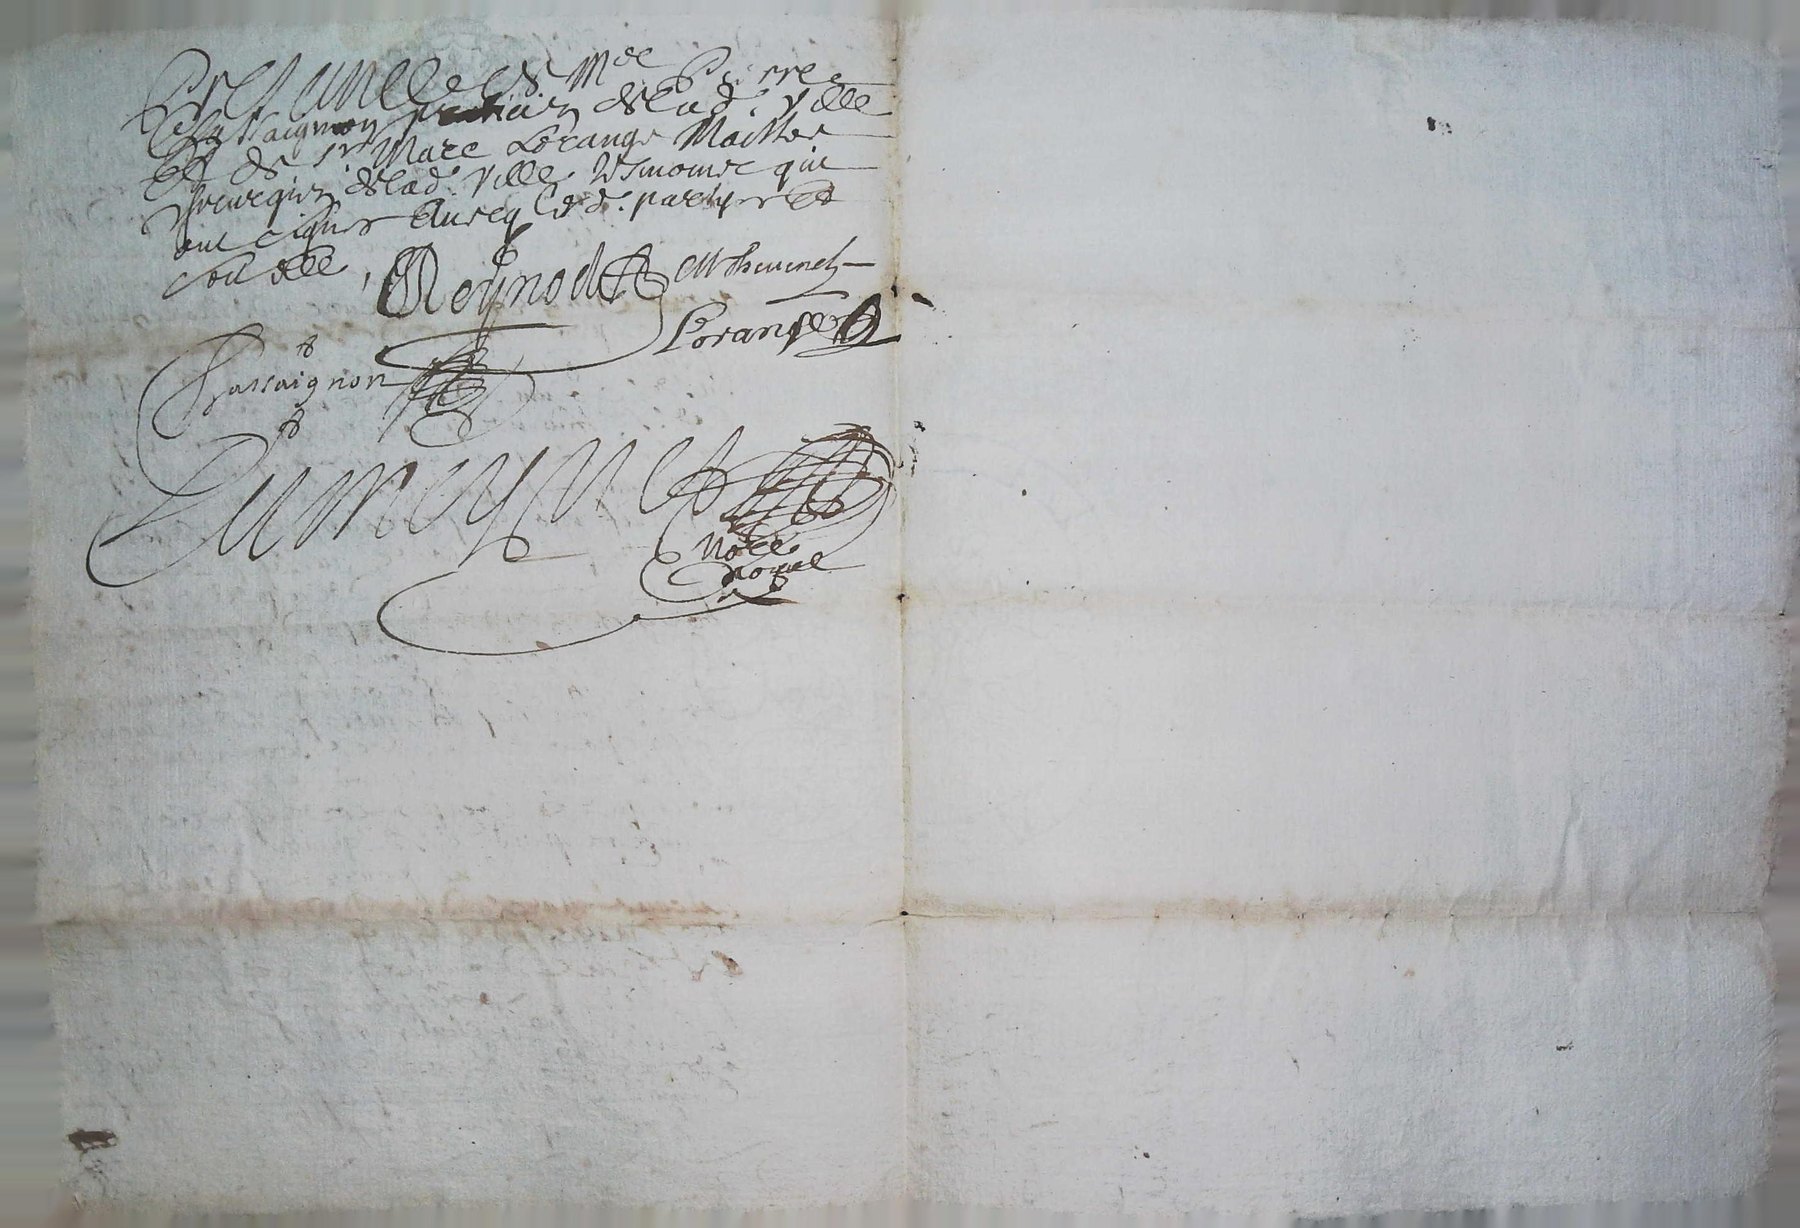 presance de Me Pierre
Chassaignon praticien de lad. ville
et de sr Marc Lorange Maistre
chirurgien de lad. ville tesmoins qui
ont signes avecq lesd. parthyes et
Reynod
Lorange
Chassaignon
Dumeynet
Notre
Royal